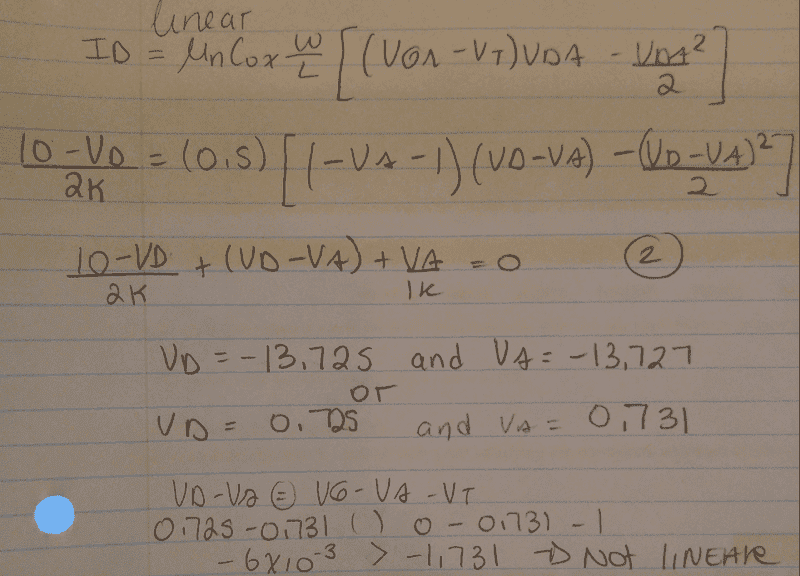 linear
ID = μnCox W/L [(VGA - VT)VDA - VDA²/2]
10-VD/2K = (0.5) [(-VA-1)(VD-VA) - (VD-VA)²/2]
10-VD/2K + (VD-VA) + VA/1K = 0 ②
VD = -13.725 and VA = -13.727
or
VD = 0.725 and VA = 0.731
VD-VA = VG-VA-VT
0.725-0.731 ( ) 0-0.731-1
-6x10⁻³ > -1.731 → Not LINEAR